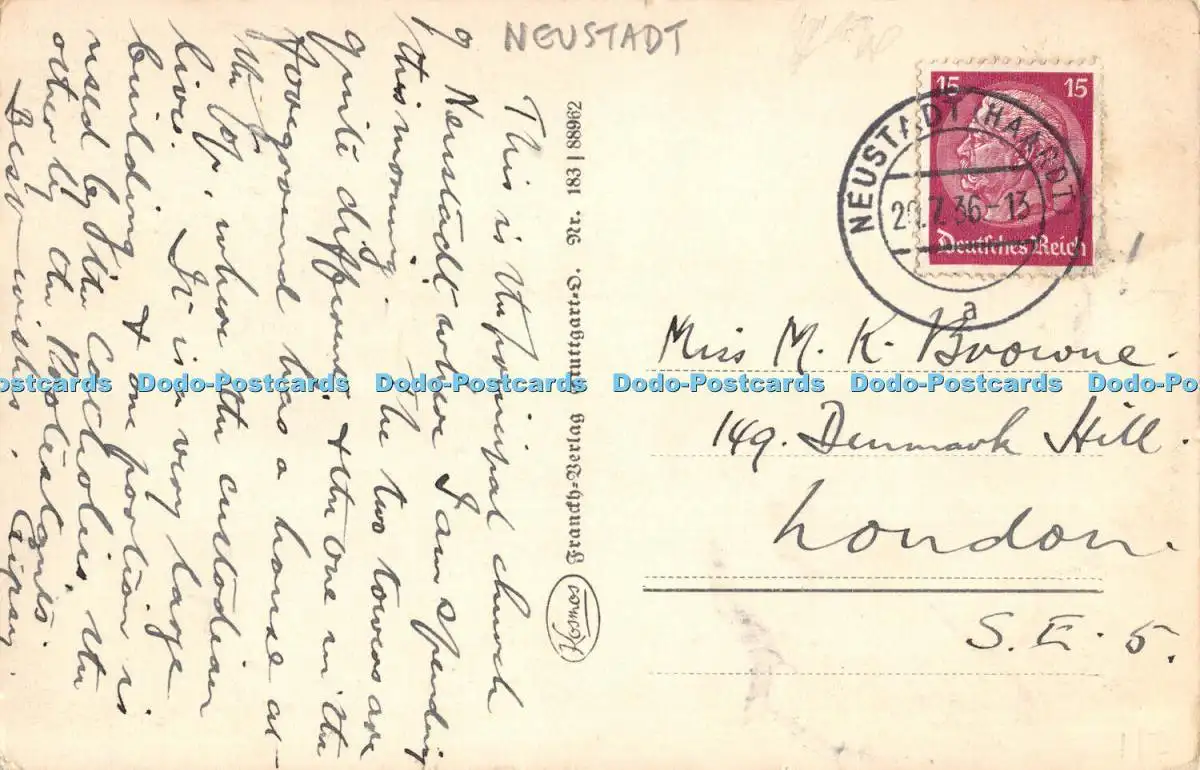 NEUSTADT
This is the principal church
of Neustadt where I am spending
this morning. The two towers are
quite different & the one in the
foreground has a house at
the top, where the custodian
lives. It is a very large
building & one portion is
used by the Catholics, the
other by the Protestants.
Best wishes.
Franckh-Verlag Stuttgart-O. Nr. 183 | 88962
Kosmos
15 15
Deutsches Reich
NEUSTADT (HAARDT)
7.36-13
a
Miss M. K. Browne.
149. Denmark Hill.
London.
S. E. 5.
Dodo-Postcards Dodo-Postcards Dodo-Postcards Dodo-Postcards Dodo-Postcards